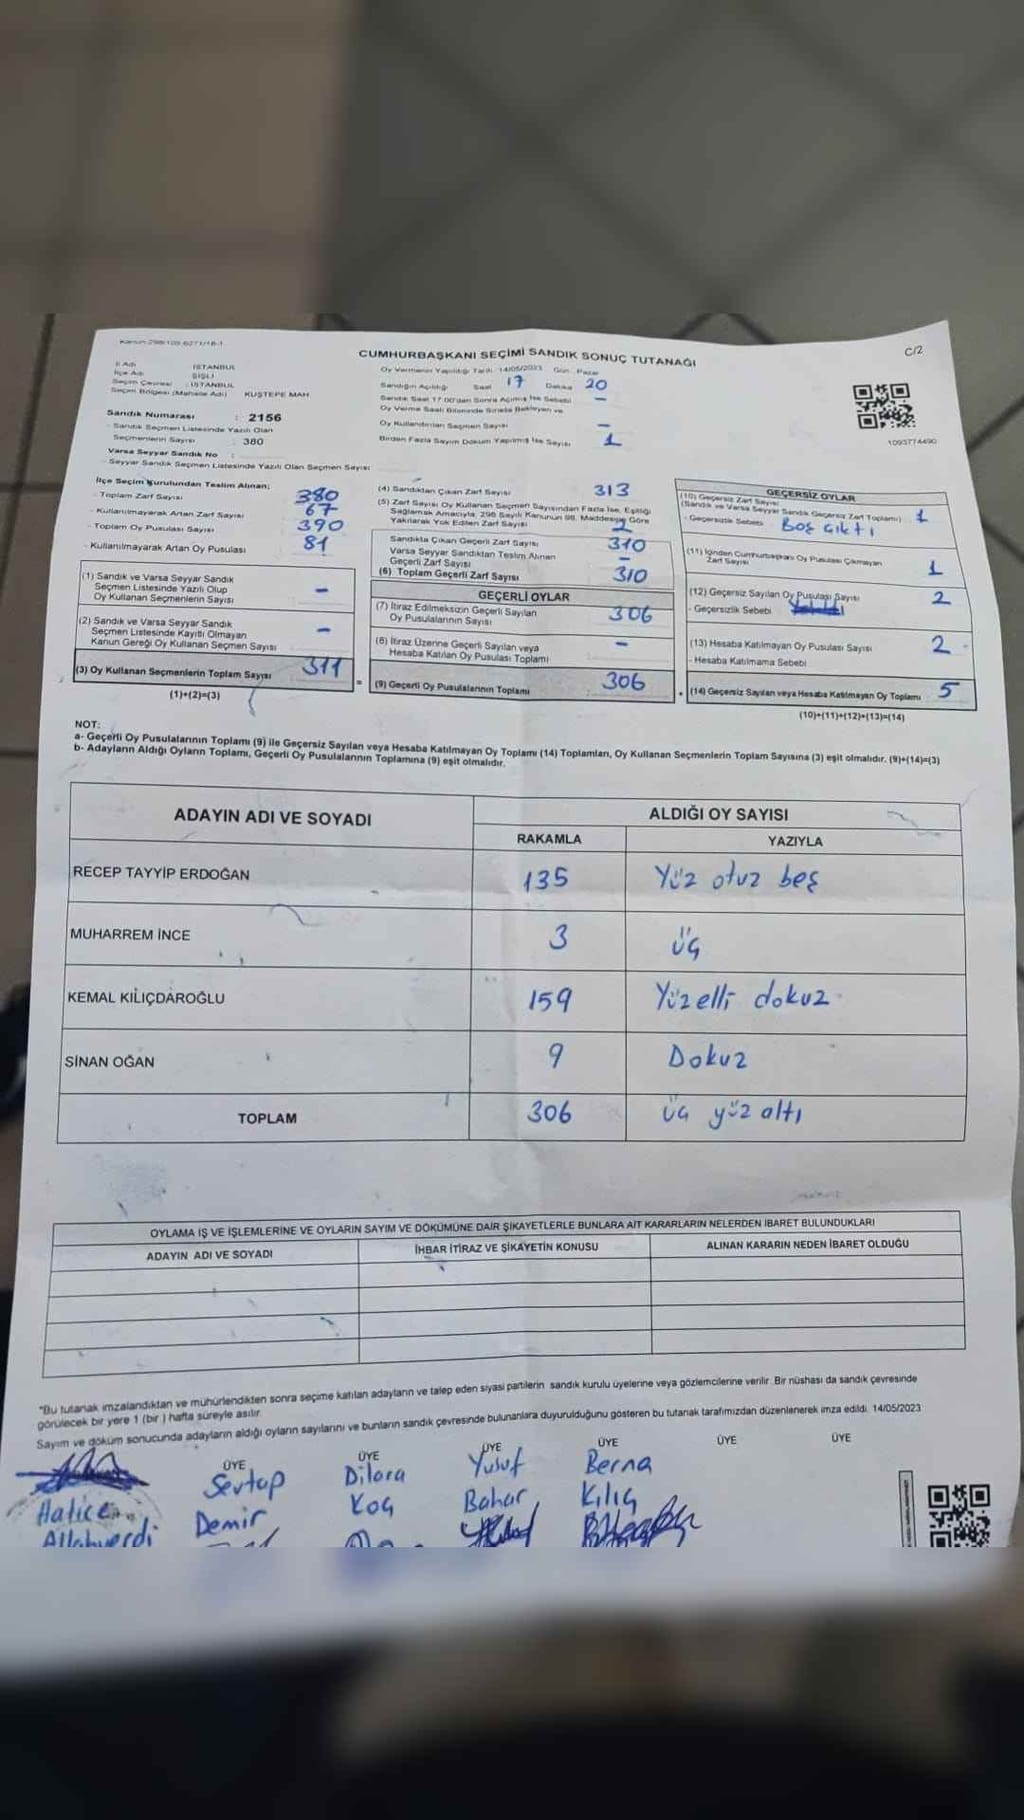 Kanun 298/105-6271/18-1
C/2
CUMHURBAŞKANI SEÇİMİ SANDIK SONUÇ TUTANAĞI
İl Adı İSTANBUL
İlçe Adı ŞİŞLİ
Seçim Çevresi : İSTANBUL
Seçim Bölgesi (Mahalle Adı) KUŞTEPE MAH
Sandık Numarası : 2156
- Sandık Seçmen Listesinde Yazılı Olan
Seçmenlerin Sayısı : 380
Varsa Seyyar Sandık No :
- Seyyar Sandık Seçmen Listesinde Yazılı Olan Seçmen Sayısı
Oy Vermenin Yapıldığı Tarih 14/05/2023 Gün Pazar
Sandığın Açıldığı Saat 17 Dakika 20
Sandık Saat 17:00'dan Sonra Açılmış İse Sebebi -
Oy Verme Saati Bitiminde Sırada Bekleyen ve
Oy Kullandırılan Seçmen Sayısı -
Birden Fazla Sayım Döküm Yapılmış İse Sayısı 1
1093774490
İlçe Seçim Kurulundan Teslim Alınan;
- Toplam Zarf Sayısı 380
- Kullanılmayarak Artan Zarf Sayısı 67
- Toplam Oy Pusulası Sayısı 390
- Kullanılmayarak Artan Oy Pusulası 81
(1) Sandık ve Varsa Seyyar Sandık
Seçmen Listesinde Yazılı Olup
Oy Kullanan Seçmenlerin Sayısı -
(2) Sandık ve Varsa Seyyar Sandık
Seçmen Listesinde Kayıtlı Olmayan
Kanun Gereği Oy Kullanan Seçmen Sayısı -
(3) Oy Kullanan Seçmenlerin Toplam Sayısı 311
(1)+(2)=(3)
(4) Sandıktan Çıkan Zarf Sayısı 313
(5) Zarf Sayısı Oy Kullanan Seçmen Sayısından Fazla İse, Eşitliği
Sağlamak Amacıyla, 298 Sayılı Kanunun 98. Maddesine Göre
Yakılarak Yok Edilen Zarf Sayısı 2
Sandıkta Çıkan Geçerli Zarf Sayısı 310
Varsa Seyyar Sandıktan Teslim Alınan
Geçerli Zarf Sayısı -
(6) Toplam Geçerli Zarf Sayısı 310
GEÇERLİ OYLAR
(7) İtiraz Edilmeksizin Geçerli Sayılan
Oy Pusulalarının Sayısı 306
(8) İtiraz Üzerine Geçerli Sayılan veya
Hesaba Katılan Oy Pusulası Toplamı -
= (9) Geçerli Oy Pusulalarının Toplamı 306
GEÇERSİZ OYLAR
(10) Geçersiz Zarf Sayısı
(Sandık ve Varsa Seyyar Sandık Geçersiz Zarf Toplamı) 1
- Geçersizlik Sebebi Boş çıktı
(11) İçinden Cumhurbaşkanı Oy Pusulası Çıkmayan
Zarf Sayısı 1
(12) Geçersiz Sayılan Oy Pusulası Sayısı 2
- Geçersizlik Sebebi
(13) Hesaba Katılmayan Oy Pusulası Sayısı 2
- Hesaba Katılmama Sebebi
+ (14) Geçersiz Sayılan veya Hesaba Katılmayan Oy Toplamı 5
(10)+(11)+(12)+(13)=(14)
NOT:
a- Geçerli Oy Pusulalarının Toplamı (9) ile Geçersiz Sayılan veya Hesaba Katılmayan Oy Toplamı (14) Toplamları, Oy Kullanan Seçmenlerin Toplam Sayısına (3) eşit olmalıdır. (9)+(14)=(3)
b- Adayların Aldığı Oyların Toplamı, Geçerli Oy Pusulalarının Toplamına (9) eşit olmalıdır.
ADAYIN ADI VE SOYADI ALDIĞI OY SAYISI
RAKAMLA YAZIYLA
RECEP TAYYİP ERDOĞAN 135 Yüz otuz beş
MUHARREM İNCE 3 üç
KEMAL KILIÇDAROĞLU 159 Yüzelli dokuz
SİNAN OĞAN 9 Dokuz
TOPLAM 306 üç yüz altı
OYLAMA İŞ VE İŞLEMLERİNE VE OYLARIN SAYIM VE DÖKÜMÜNE DAİR ŞİKAYETLERLE BUNLARA AİT KARARLARIN NELERDEN İBARET BULUNDUKLARI
ADAYIN ADI VE SOYADI İHBAR İTİRAZ VE ŞİKAYETİN KONUSU ALINAN KARARIN NEDEN İBARET OLDUĞU
"Bu tutanak imzalandıktan ve mühürlendikten sonra seçime katılan adayların ve talep eden siyasi partilerin sandık kurulu üyelerine veya gözlemcilerine verilir. Bir nüshası da sandık çevresinde
görülecek bir yere 1 (bir ) hafta süreyle asılır.
Sayım ve döküm sonucunda adayların aldığı oyların sayılarını ve bunların sandık çevresinde bulunanlara duyurulduğunu gösteren bu tutanak tarafımızdan düzenlenerek imza edildi. 14/05/2023
ÜYE ÜYE ÜYE ÜYE ÜYE ÜYE
Hatice Sevtap Dilara Yusuf Berna
Allahverdi Demir Koç Bahar Kılıç